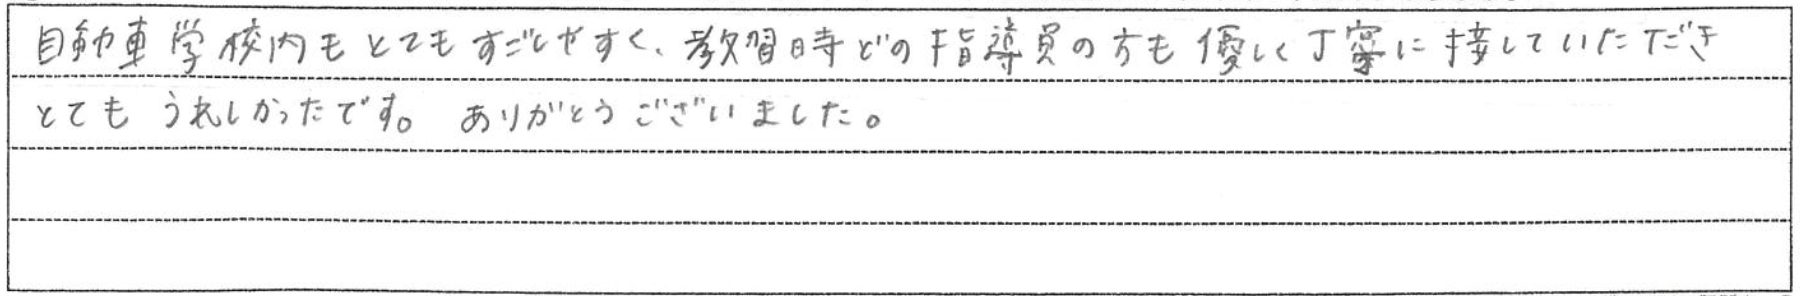 自動車学校内もとてもすごしやすく、教習時どの指導員の方も優しく丁寧に接していただき
とてもうれしかったです。ありがとうございました。